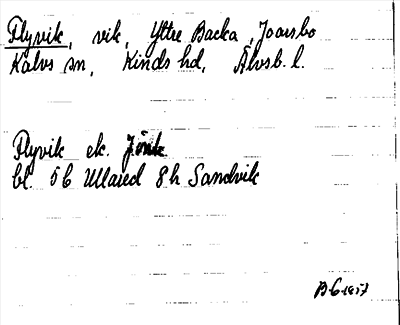 Flyvik, vik, Yttre Backa, Joarsbo
Kalvs sn, Kinds hd, Älvsb. l.
Flyvik ek.
bl. 5C Ullared 8h Sandvik